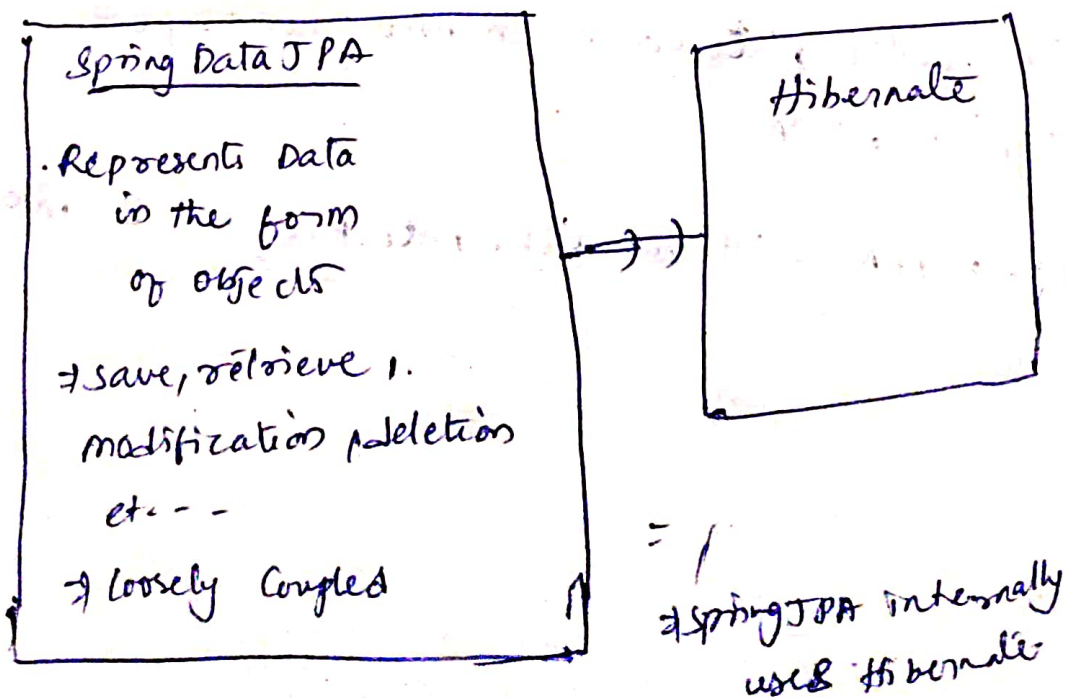 Spring Data JPA
. Represents Data
in the form
of objects
⇒ save, retrieve,
modification, deletion
etc - -
⇒ loosely Coupled
Hibernate
⇒ Spring JPA internally
uses Hibernate